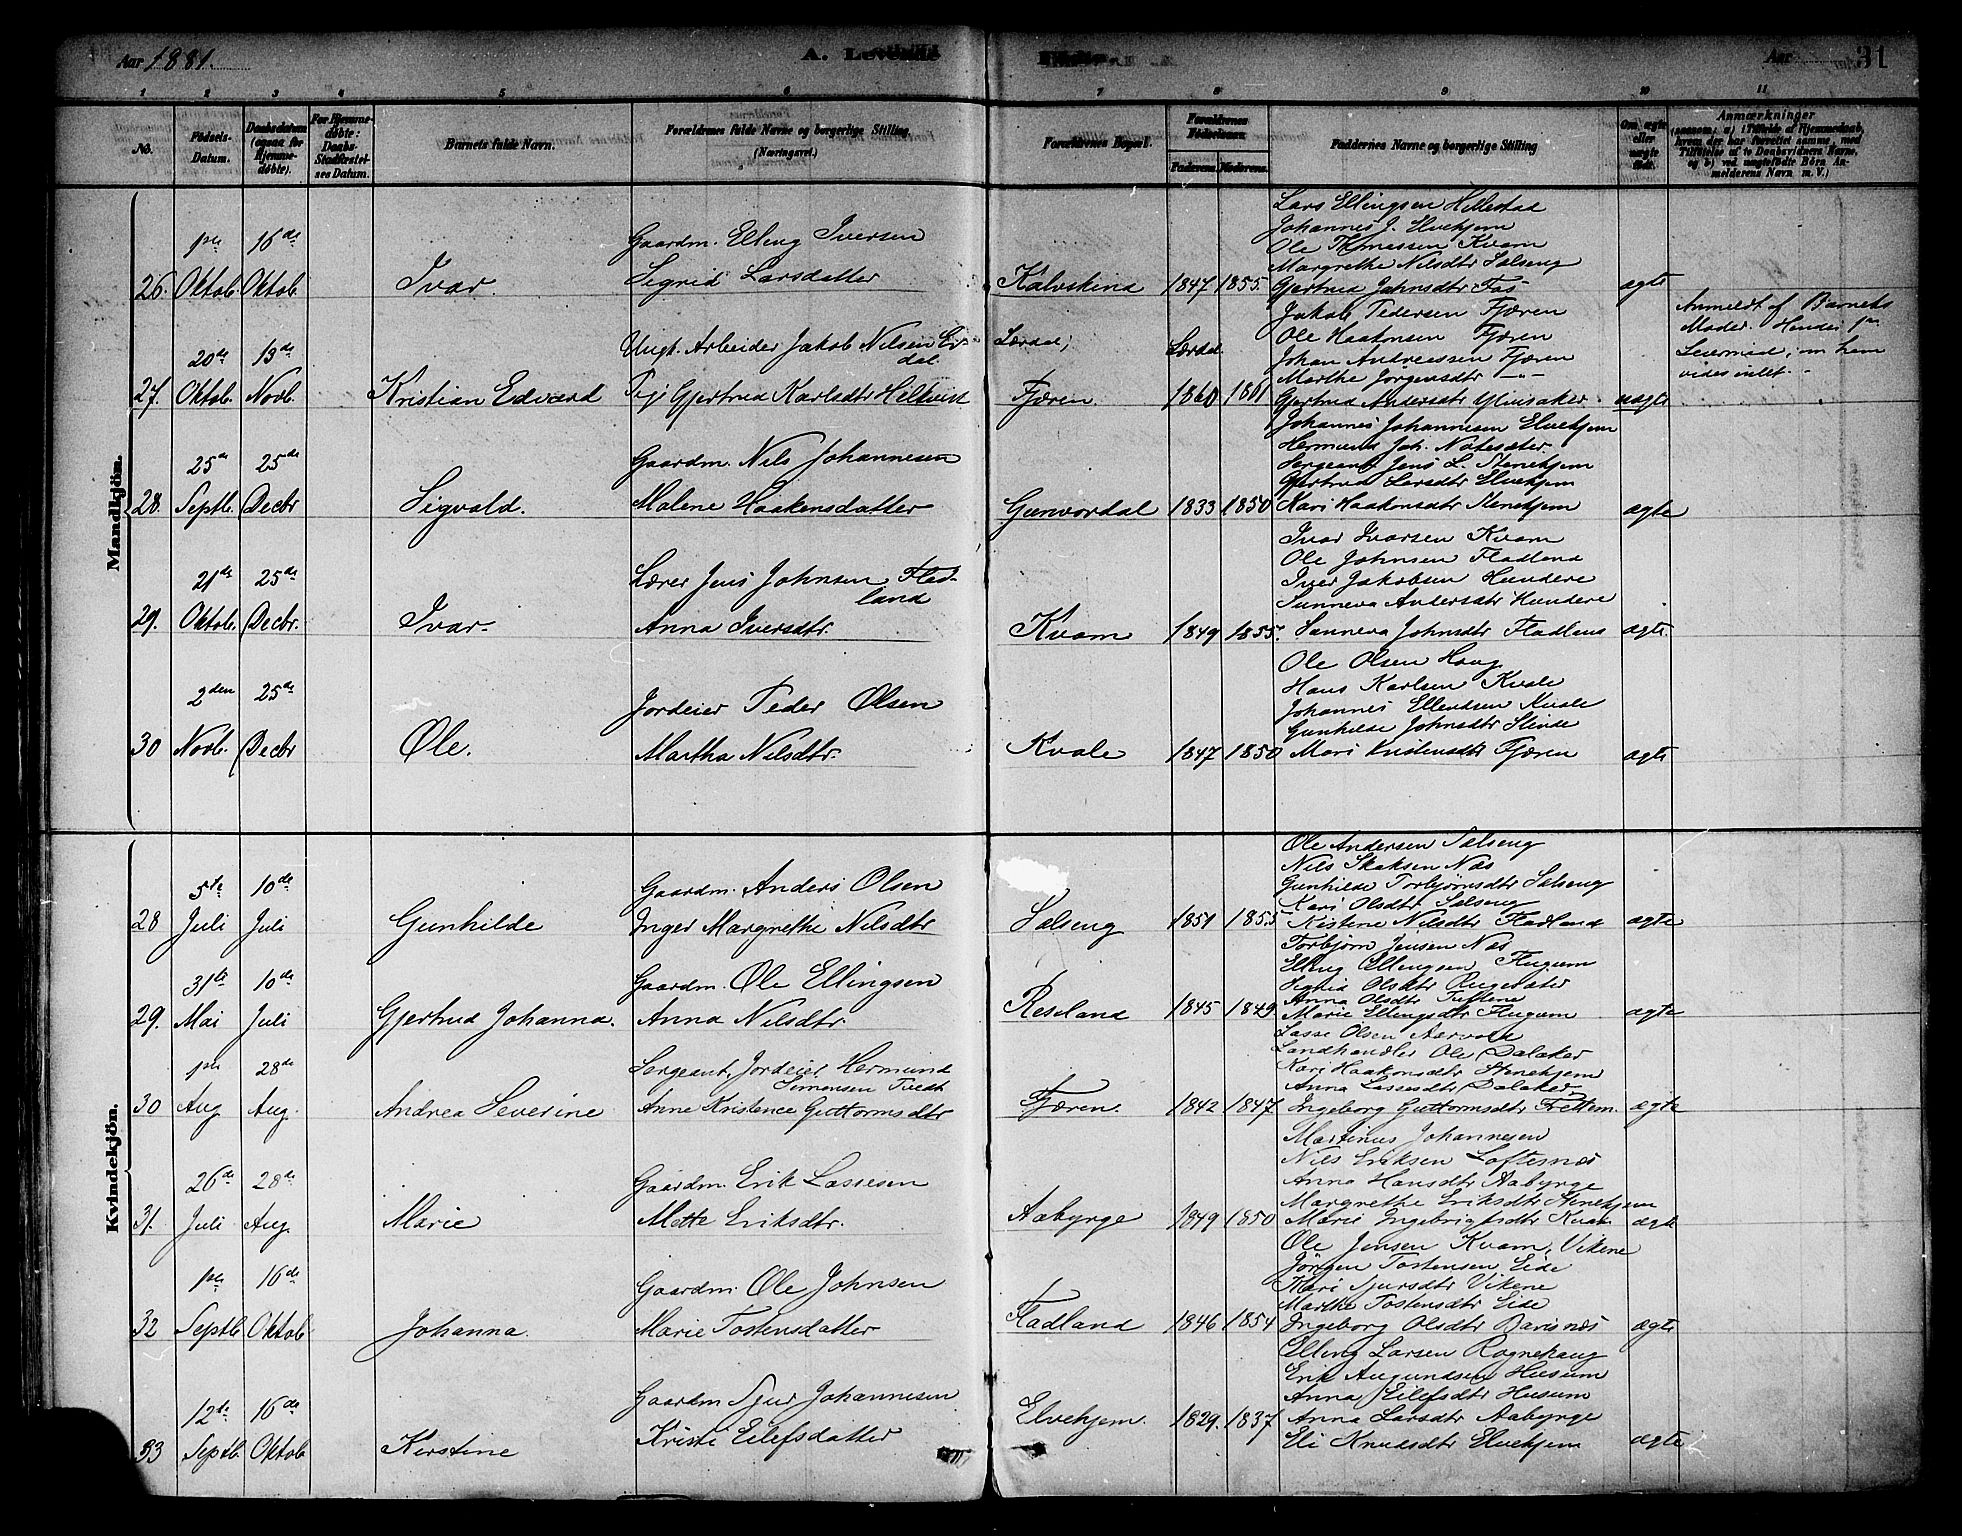 Aar 1881.
A. Levende
Aar 31
1 2 3 4 5 6 7 8 9 10 11
No. Fødsels-Datum. Daabsdatum (ogsaa for Hjemme-døbte). For Hjemme-døbte: Daabs-Stadfæstel-ses Datum. Barnets fulde Navn. Forældrenes fulde Navne og borgerlige Stilling (Næringsvei). Forældrenes Bopæl. Forældrenes Fødselsaar. Faderens. Moderens. Faddernes Navne og borgerlige Stilling Om ægte eller uægte født. Anmærkninger
Mandkjön.
Lars Ellingsen Hillestad
Johannes J. Elvehjem
1ste 16de Gaardm. Elling Iversen Ole Thomassen Kvam
Margrethe Nilsdtr Salseng
26. Oktob. Oktob. Ivar. Sigrid Larsdatter Kalvskind 1847 1855. Gjertrud Jahnsdtr Fos ægte
Jakob Pedersen Fjæren Anmeldt af Barnets
20de 13de Ungk. Arbeider Jakob Nilsen Eri- Lærdal; Lærdal. Ole Haakonsen Fjæren Moder. Hendes 1ste
dal Johan Andreassen Fjæren Leiermaal;
Marthe Jörgensdtr -"-
27. Oktob. Novb. Kristian Edvard Pige Gjertrud Karlsdtr Fjæren 1860 1861 Gjertrud Andersdtr Ylvisaker. uægte
Johannes Johannesen Elvehjem
25de 25de Gaardm. Nils Johannesen Hermund Joh. Notesæter.
Sergeant Jens L. Stenehjem
Gjertrud Larsdtr Elvehjem
28. Septb. Decbr Sigvald. Malene Haakensdatter Gunvordal 1833 1850 Kari Haakonsdtr Stenehjem ægte
Ivar Ivarsen Kvam
21de 25de Lærer Jens Johnsen Flad- Ole Johnsen Fladland
land Iver Jakobsen Hundere
Sunneva Andersdtr Hundere
29. Oktob. Decbr. Ivar. Anna Iversdtr. Kvam 1849 1855. Sunneva Johnsdtr Fladland ægte.
Ole Olsen Haug
2den 25de Jordeier Peder Olsen Hans Karlsen Kvale
Johannes Ellendsen Kvale
Gunhilde Johnsdtr Stinde
30 Novb. Decbr Ole. Martha Nilsdtr. Kvale 1847 1850 Mari Kristensdtr Fjæren ægte
Kvindekjön.
Ole Andersen Salseng
Nils Skaksen Næs
5te 10de Gaardm. Anders Olsen Gunhilde Torbjørnsdtr Salseng
Kari Olsdtr Salseng
28 Juli Juli Gunhilde Inger Margrethe Nilsdtr Salseng 1851 1855 Kistine Nilsdtr Fladland ægte
Torbjørn Jensen Næs
31te 10de Gaardm. Ole Ellingsen Elling Ellingsen Flugum
Sigrid Olsdtr
Anna Olsdtr Tuftene
29. Mai Juli Gjertrud Johanna. Anna Nilsdtr. Reseland 1845 1849 Marie Ellingsdtr Flugum ægte
Lasse Olsen Aarvold
1ste 28de Sergeant, Jordeier Hermund Landhandler Ole Dalaker
Simonsen Tvedt Kari Haakonsdtr Stenehjem
Anna Lassesdtr Dalaker
30 Aug Aug. Andrea Severine Anne Kristence Guttormsdtr Fjæren. 1842 1847 Ingeborg Guttormsdtr Frettem. ægte
Martinus Johannesen
26de 28de Gaardm. Erik Lassesen Nils Eriksen Loftesnæs
Anna Hansdtr Aabyrge
Margrethe Eriksdtr Stenehjem
31. Juli Aug. Marie Mette Eriksdtr. Aabyrge 1849 1850 Marie Ingebrigtsdtr Kvam ægte
Ole Jensen Kvam, Vikene
1ste 16de Gaardm. Ole Johnsen Jörgen Tostensen Eide
Kari Sjursdtr Vikene
Marthe Tostensdtr Eide
32 Septb Oktob Johanna. Marie Tostensdatter Fladland 1846 1854 Ingeborg Olsdtr Barsnæs ægte
Elling Larsen Rognehaug
12te 16de Gaardm Sjur Johannesen Erik Augundsen Husum
Anna Eilefsdtr Husum
Anna Larsdtr Aabyrge
33 Septb. Oktob Kerstine Kristi Eilefsdatter Elvehjem. 1829. 1837 Eli Knudsdtr Elvehjem ægte